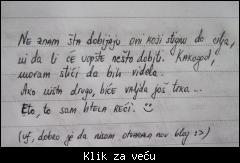 Ne znam šta dobijaju oni koji stignu do cilja,
ni da li će uopšte nešto dobiti. Kakogod,
moram stići da bih videla.
Ako ništa drugo, biće valjda još trka...
Eto, to sam htela reći. :)
(uf, dobro je da nisam otvarala nov blog :>)
Klik za veču